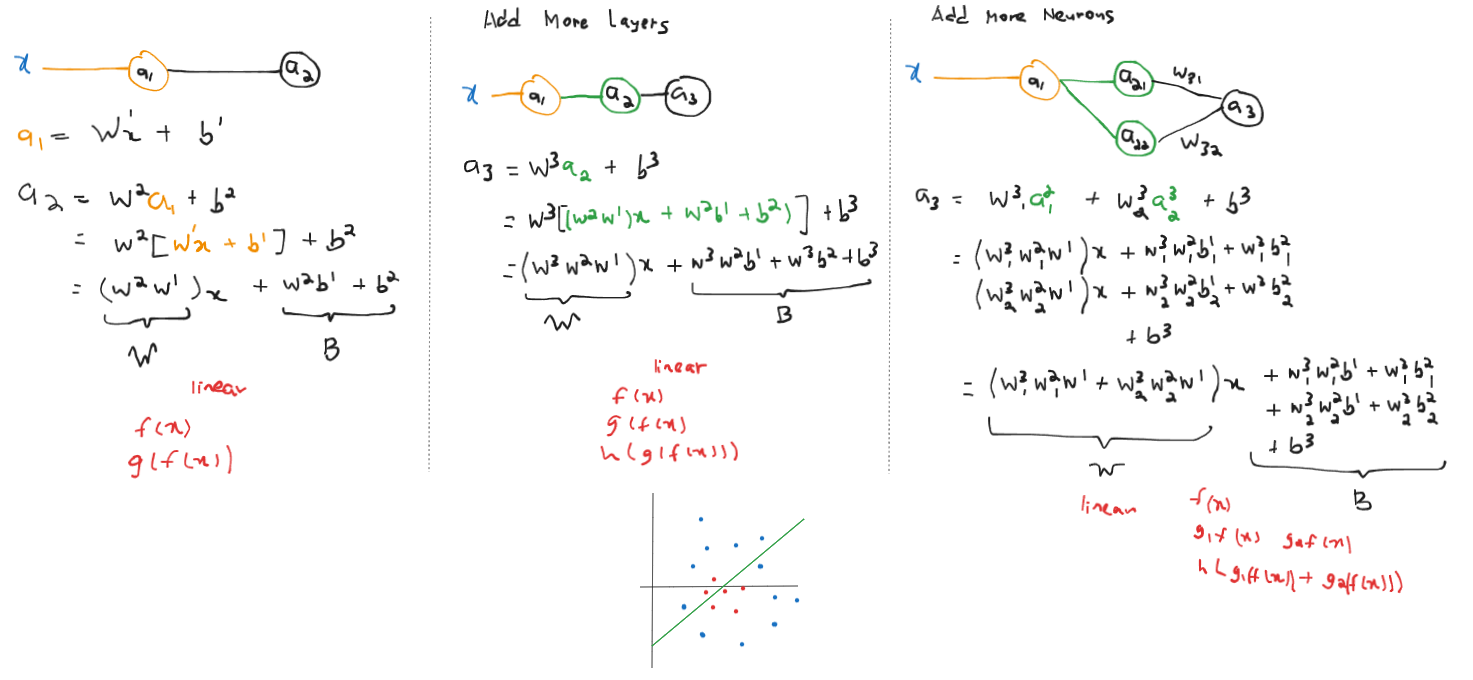 x a₁ a₂
a₁ = W¹x + b¹
a₂ = W²a₁ + b²
= W²[W¹x + b¹] + b²
= (W²W¹)x + W²b¹ + b²
W B
linear
f(x)
g(f(x))
Add More Layers
x a₁ a₂ a₃
a₃ = W³a₂ + b³
= W³[(W²W¹)x + W²b¹ + b²)] + b³
= (W³W²W¹)x + W³W²b¹ + W³b² + b³
W B
linear
f(x)
g(f(x)
h(g(f(x)))
Add More Neurons
x a₁ a₂₁ W₃₁ a₃
a₂₂ W₃₂
a₃ = W³₁a²₁ + W³₂a³₂ + b³
= (W³₁W²₁W¹)x + W³₁W²₁b¹₁ + W³₁b²₁
(W³₂W²₂W¹)x + W³₂W²₂b¹₂ + W³b²₂
+ b³
= (W³₁W²₁W¹ + W³₂W²₂W¹)x + W³₁W²₁b¹ + W³₁b²₁
+ W³₂W²₂b¹ + W³₂b²₂
+ b³
W B
linear
f(x)
g₁f(x) g₂f(x)
h(g₁f(f(x)) + g₂(f(x)))